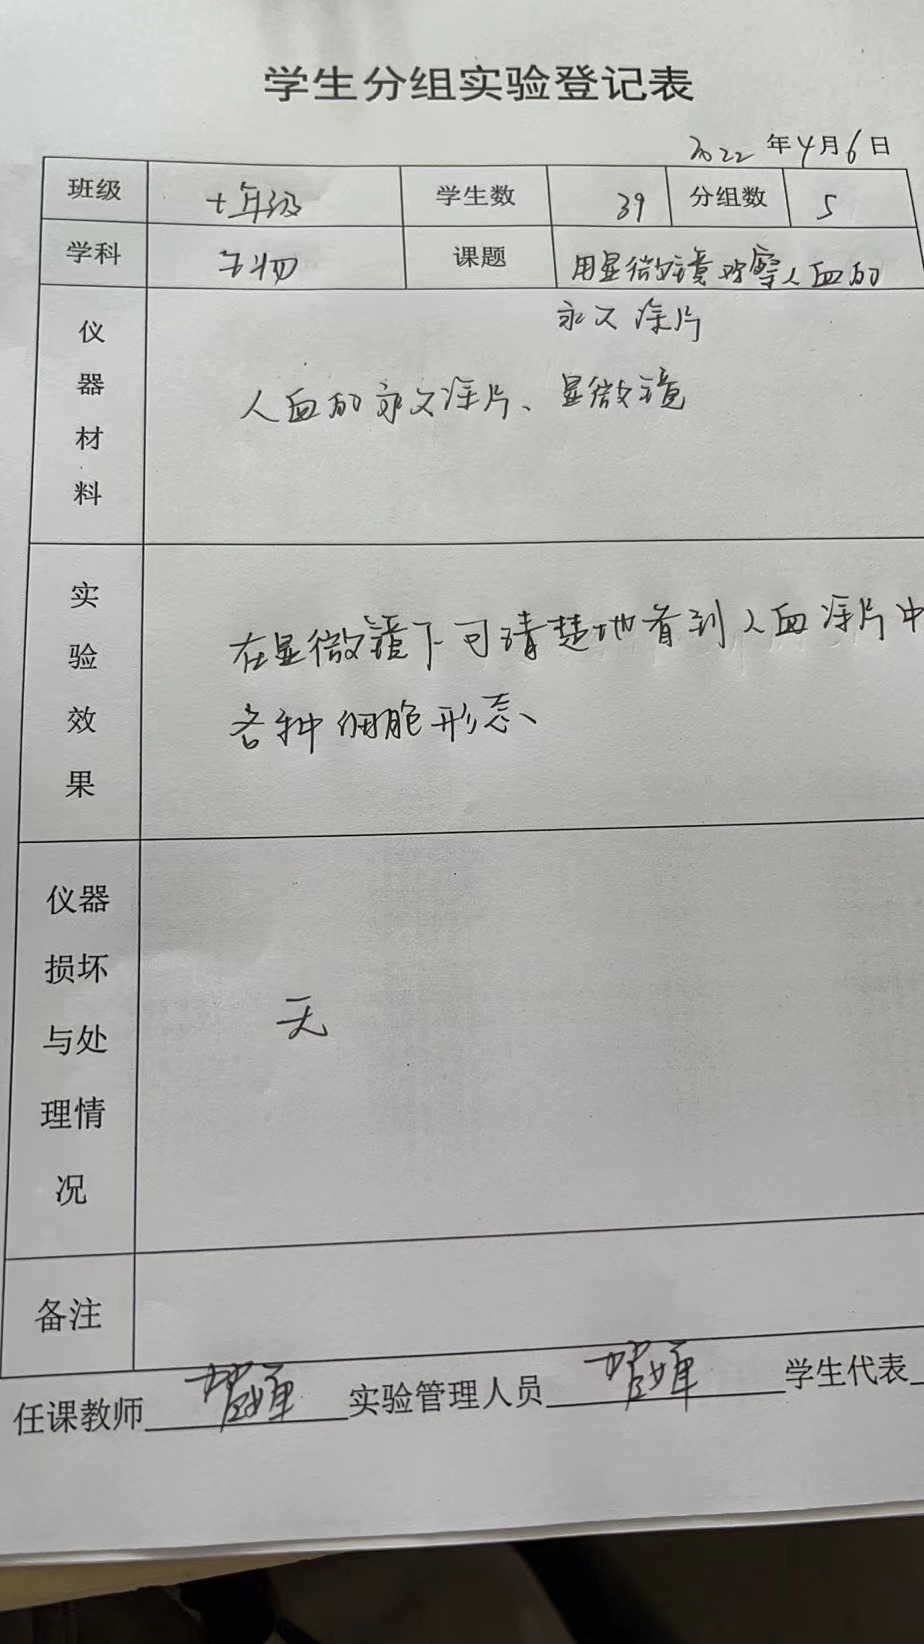 学生分组实验登记表
2022 年 4 月 6 日
班级 七年级 学生数 39 分组数 5
学科 生物 课题 用显微镜观察人血的
永久涂片
仪器材料 人血的永久涂片、显微镜
实验效果 在显微镜下可清楚地看到人血涂片中
各种细胞形态、
仪器损坏与处理情况 无
备注
任课教师 实验管理人员 学生代表